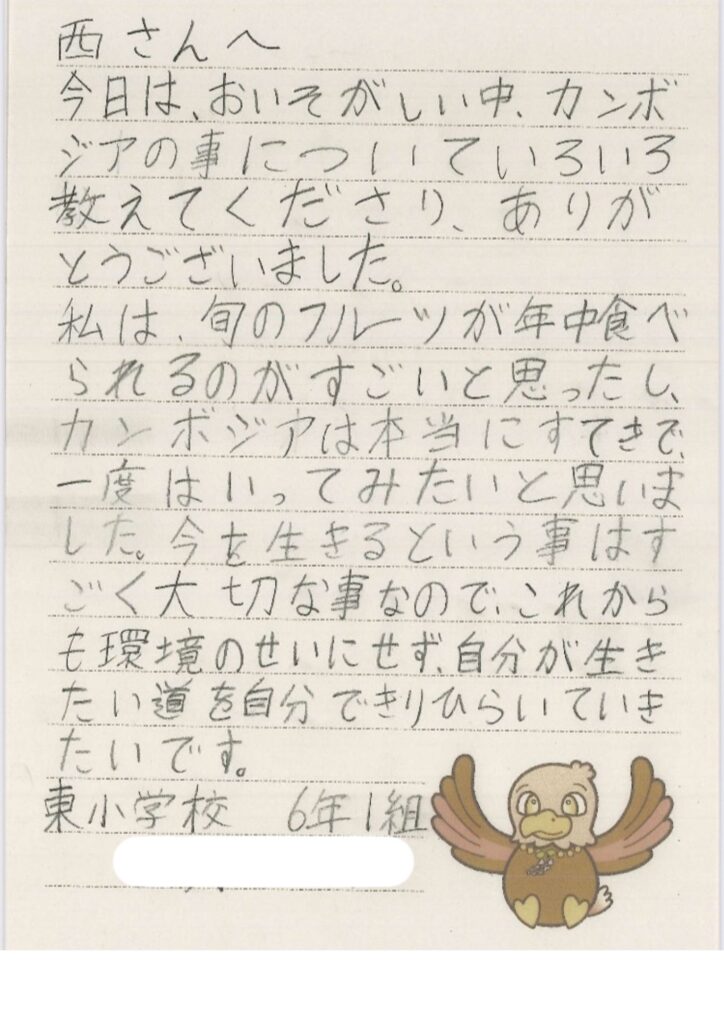 西さんへ
今日は、おいそがしい中、カンボ
ジアの事についていろいろ
教えてくださり、ありが
とうございました。
私は、旬のフルーツが年中食べ
られるのがすごいと思ったし、
カンボジアは本当にすてきで、
一度はいってみたいと思いま
した。今を生きるという事はす
ごく大切な事なので、これから
も環境のせいにせず、自分が生き
たい道を自分できりひらいていき
たいです。
東小学校 6年1組